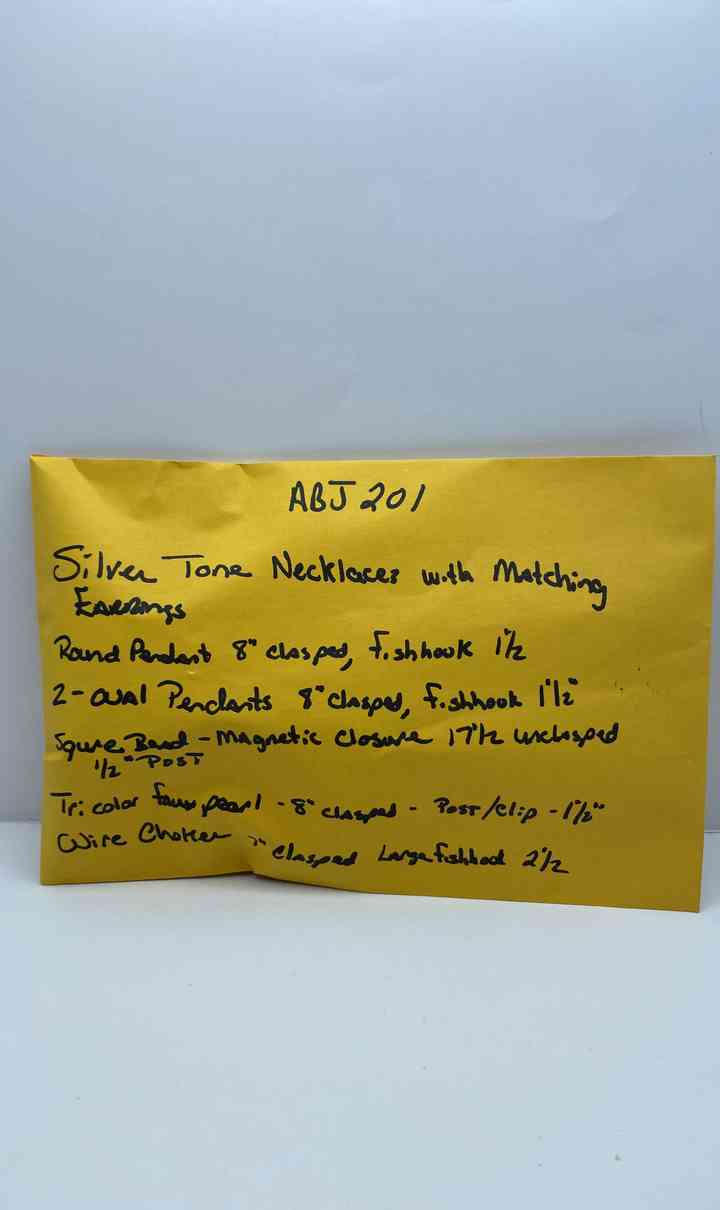 ABJ 201
Silver Tone Necklaces with Matching
Earrings
Round Pendant 8" clasped, fishhook 1½
2-oval Pendants 8" clasped, fishhook 1½"
Square Bead - Magnetic closure 17½ unclasped
½" Post
Tri color faux pearl - 8" clasped - Post/clip - 1½"
Wire Choker 7" clasped Large fishhook 2½